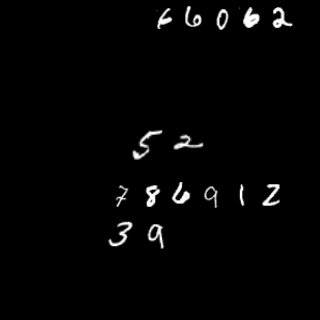 66062
52
786912
39